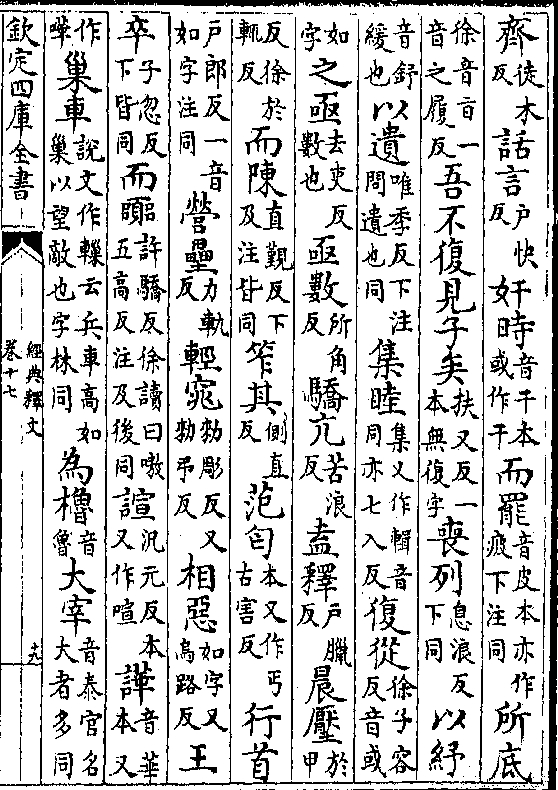 齊徒本反話言户快反奸時音干本或作干而罷音皮本亦作疲下注同所底
徐音㫖一音之履反吾不復見子矣扶又反一本無復字喪列息浪反下同以紓
音舒緩也以遺唯季反下注問遺也同集睦集又作輯音同亦七入反復從徐子容反音或
如字之亟去吏反數也亟數所角反驕亢苦浪反盍釋户臘反晨壓於甲
反徐於輒反而陳直覲反下及注皆同笮其側直反范匄本又作丐古害反行首
户郎反一音如字注同營壘力軌反輕窕勑彫反又勑弔反相惡如字又烏路反王
卒子忽反下皆同而囂許驕反徐讀曰嗷五高反注及後同諠汎元反本又作喧譁音華本又
作嘩巢車說文作轈云兵車高如巢以望敵也字林同為櫓音魯大宰音泰官名大者多同
欽定四庫全書
經典釋文
卷十七